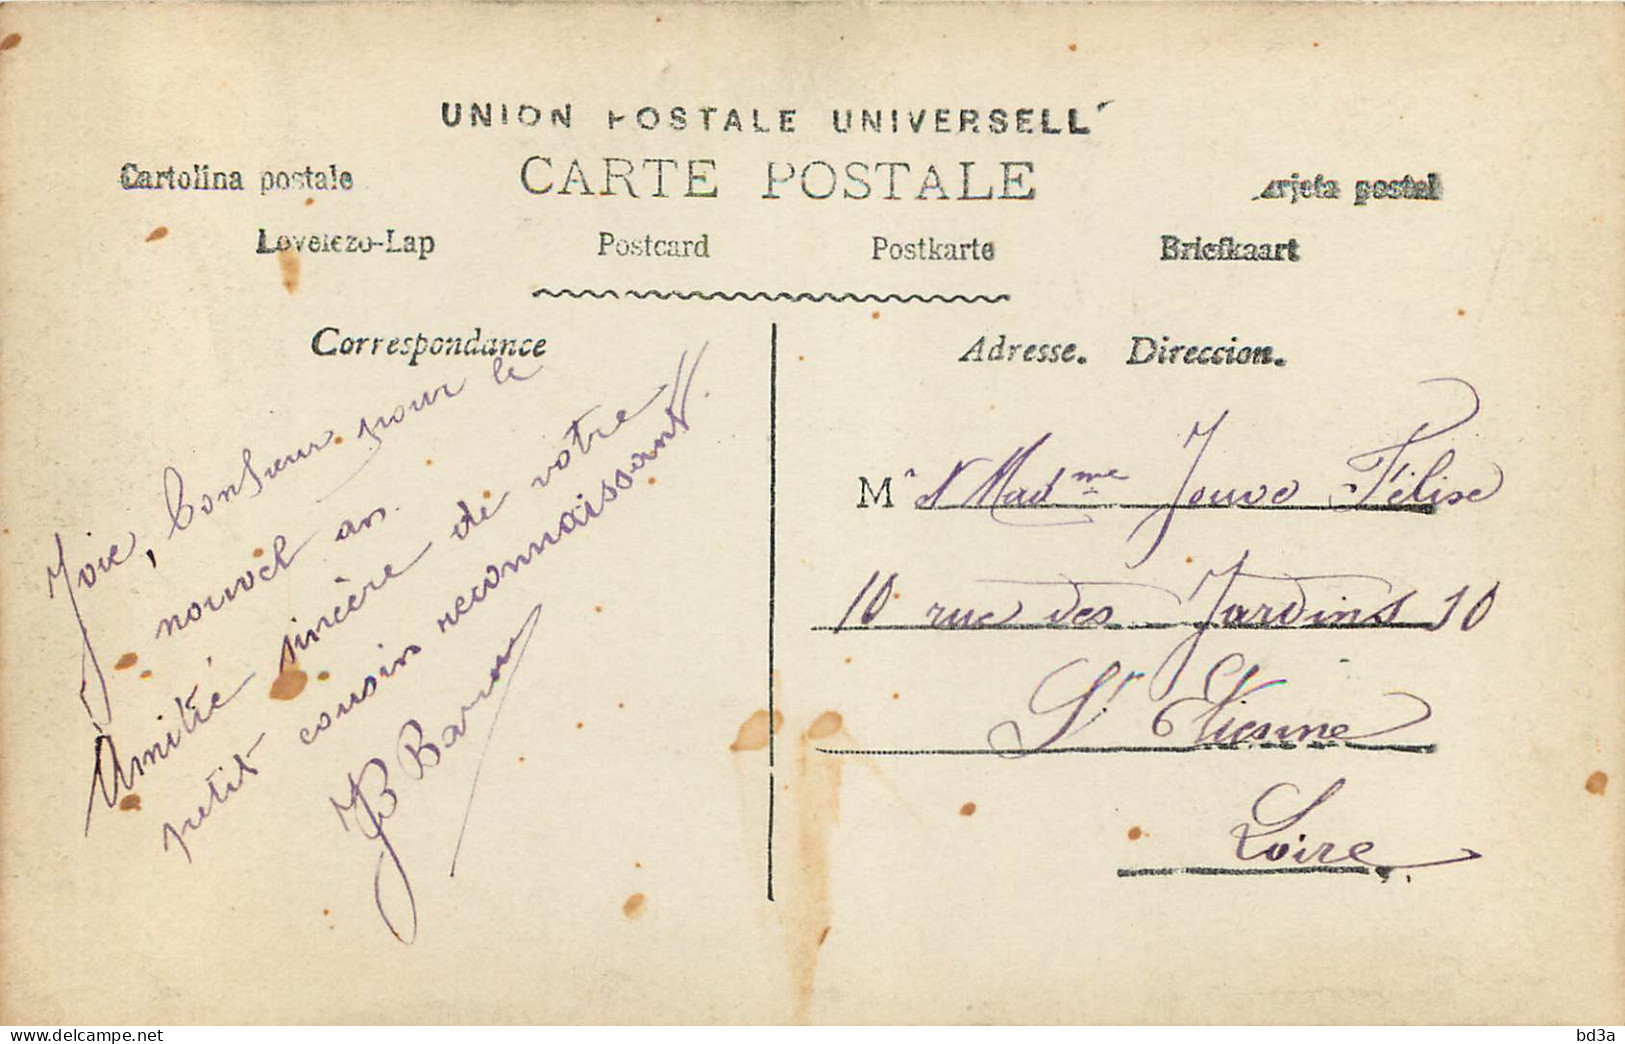 UNION POSTALE UNIVERSELL
CARTE POSTALE
Cartolina postale
arjeta postal
Levelezo-Lap Postcard Postkarte Briefkaart
Correspondance
Joie, bonheur pour le
nouvel an.
Amitié sincère de votre
petit cousin reconnaissant
JB Baron
Adresse. Direccion.
Mr et Madme Jouve Félise
10 rue des Jardins 10
St Etienne
Loire
www.delcampe.net
bd3a